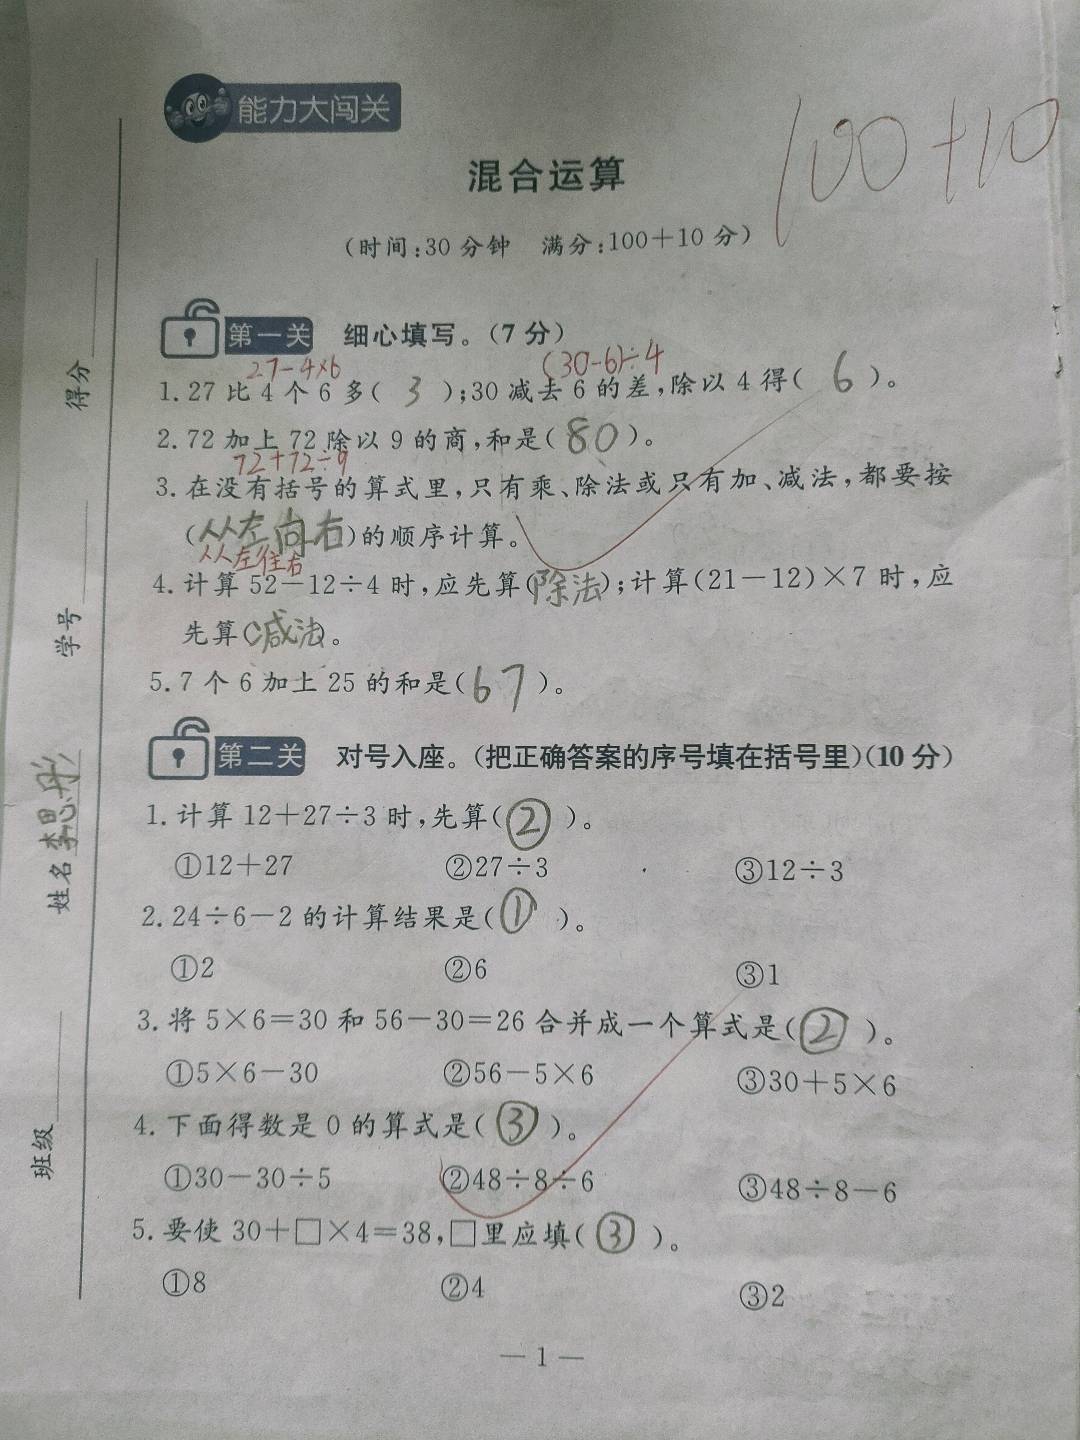 能力大闯关
100+10
混合运算
(时间:30分钟 满分:100+10分)
第一关 细心填写。(7分)
27-4×6 (30-6)÷4
1.27比4个6多( 3 );30减去6的差,除以4得( 6 )。
2.72加上72除以9的商,和是(80)。
72+72÷9
3.在没有括号的算式里,只有乘、除法或只有加、减法,都要按
(从左向右)的顺序计算。
从左往右
4.计算52-12÷4时,应先算(除法);计算(21-12)×7时,应
先算(减法)。
5.7个6加上25的和是(67)。
第二关 对号入座。(把正确答案的序号填在括号里)(10分)
1.计算12+27÷3时,先算(②)。
①12+27 ②27÷3 ③12÷3
2.24÷6-2的计算结果是(①)。
①2 ②6 ③1
3.将5×6=30和56-30=26合并成一个算式是(②)。
①5×6-30 ②56-5×6 ③30+5×6
4.下面得数是0的算式是(③)。
①30-30÷5 ②48÷8÷6 ③48÷8-6
5.要使30+□×4=38,□里应填(③)。
①8 ②4 ③2
— 1 —
得分
学号
姓名 李思彤
班级